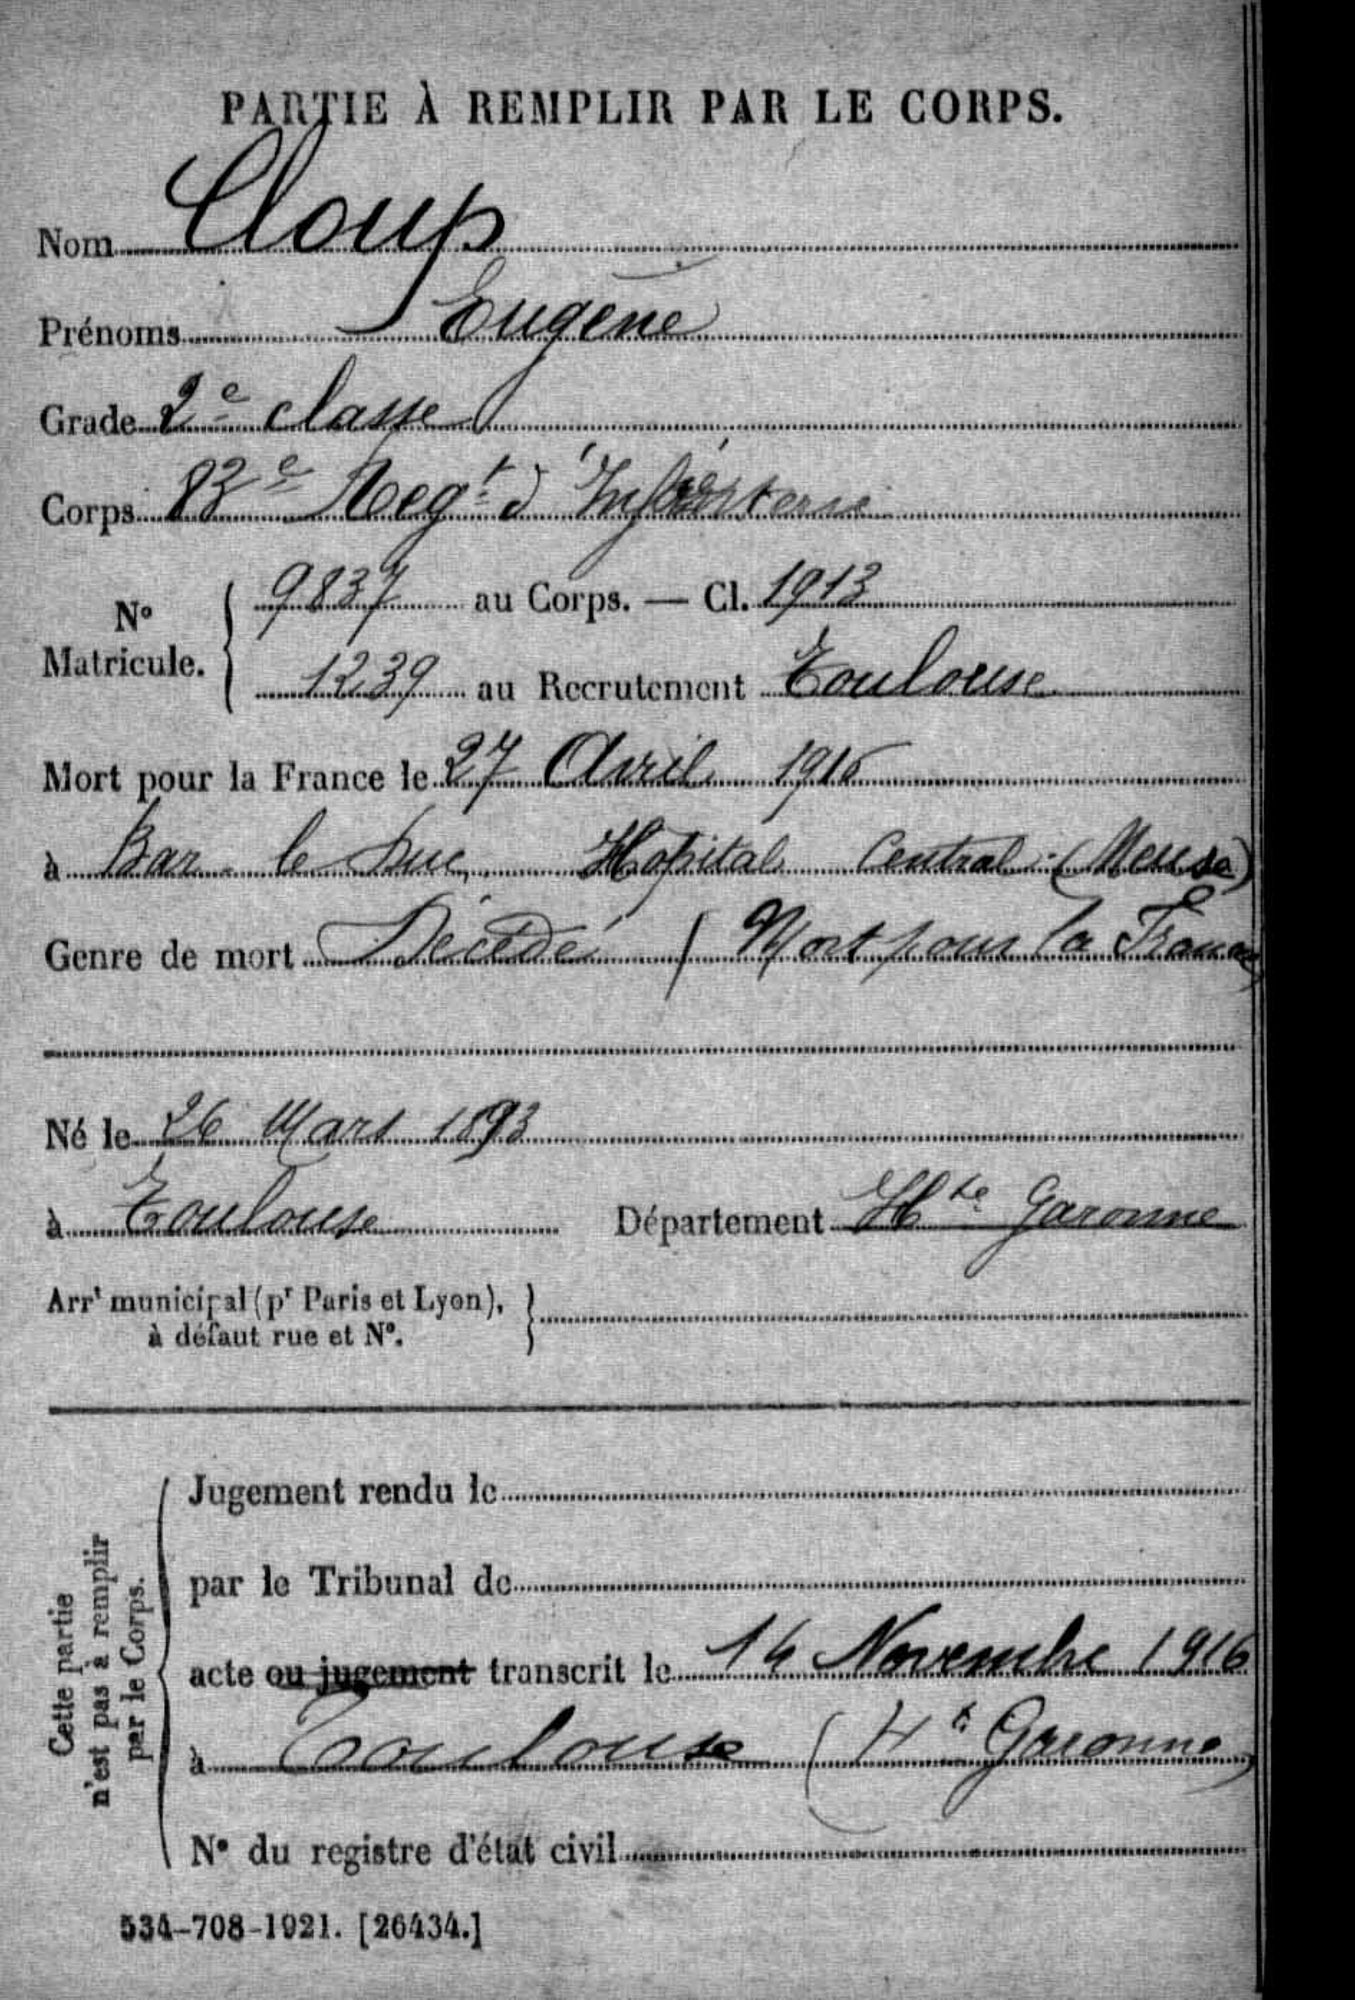 PARTIE À REMPLIR PAR LE CORPS.
Nom Cloup
Prénoms Eugène
Grade 2e classe
Corps 83e Regt d'Infanterie
No Matricule. { 9837 au Corps. — Cl. 1913
1239 au Recrutement Toulouse
Mort pour la France le 27 Avril 1916
à Bar le Duc, Hopital Central (Meuse)
Genre de mort Décédé / Mort pour la France
Né le 26 Mars 1893
à Toulouse Département Hte Garonne
Arrt municipal (pr Paris et Lyon), }
à défaut rue et No.
Cette partie
n'est pas à remplir
par le Corps.
Jugement rendu le
par le Tribunal de
acte ou jugement transcrit le 14 Novembre 1916
à Toulouse (Hte Garonne)
No du registre d'état civil
534-708-1921. [26434.]